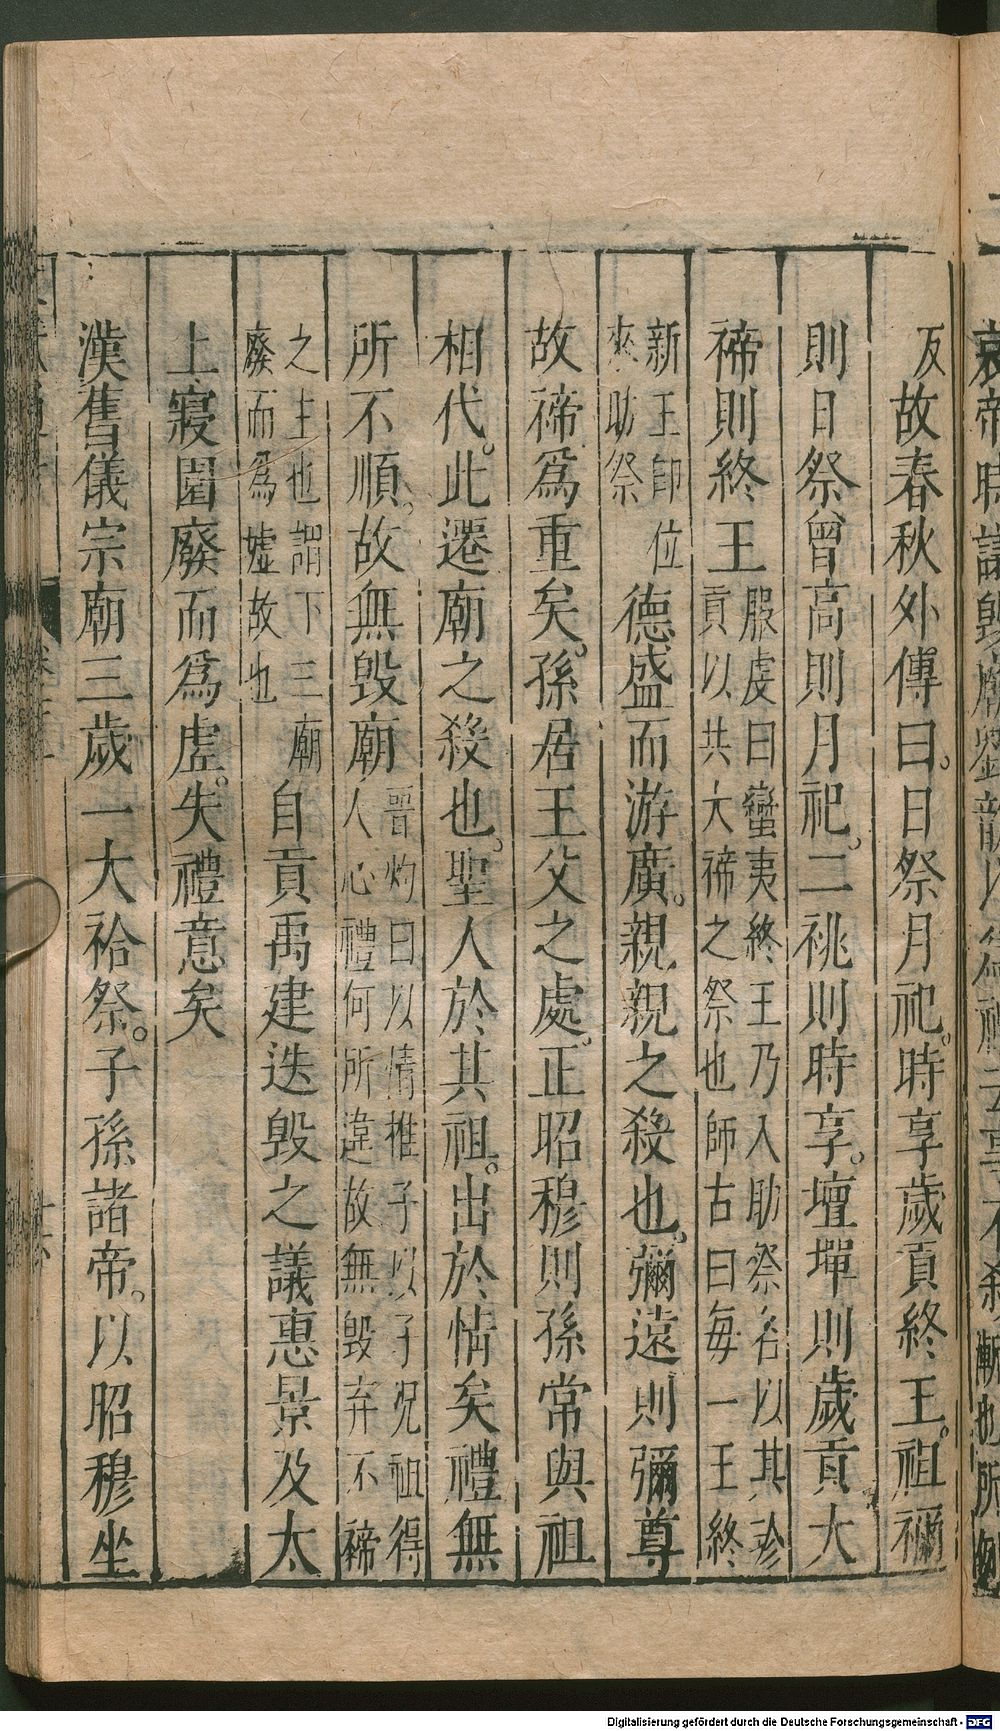 反故春秋外傳曰。日祭月祀。時享歲貢終王。祖禰
則日祭曾高則月祀。二祧則時享。壇墠則歲貢大
禘則終王服虔曰蠻夷終王乃入助祭各以其珍貢以共大禘之祭也師古曰每一王終
新王即位來助祭德盛而游廣。親親之殺也。彌遠則彌尊
故禘爲重矣。孫居王父之處。正昭穆則孫常與祖
相代。此遷廟之殺也。聖人於其祖。出於情矣禮無
所不順。故無毀廟晉灼曰以情推子以子况祖得人心禮何所違故無毀弃不禘
之主也謂下三廟廢而爲墟故也自貢禹建迭毀之議惠景及太
上寢園廢而爲虛。失禮意矣
漢舊儀宗廟三歲一大祫祭。子孫諸帝。以昭穆坐
Digitalisierung gefördert durch die Deutsche Forschungsgemeinschaft - DFG